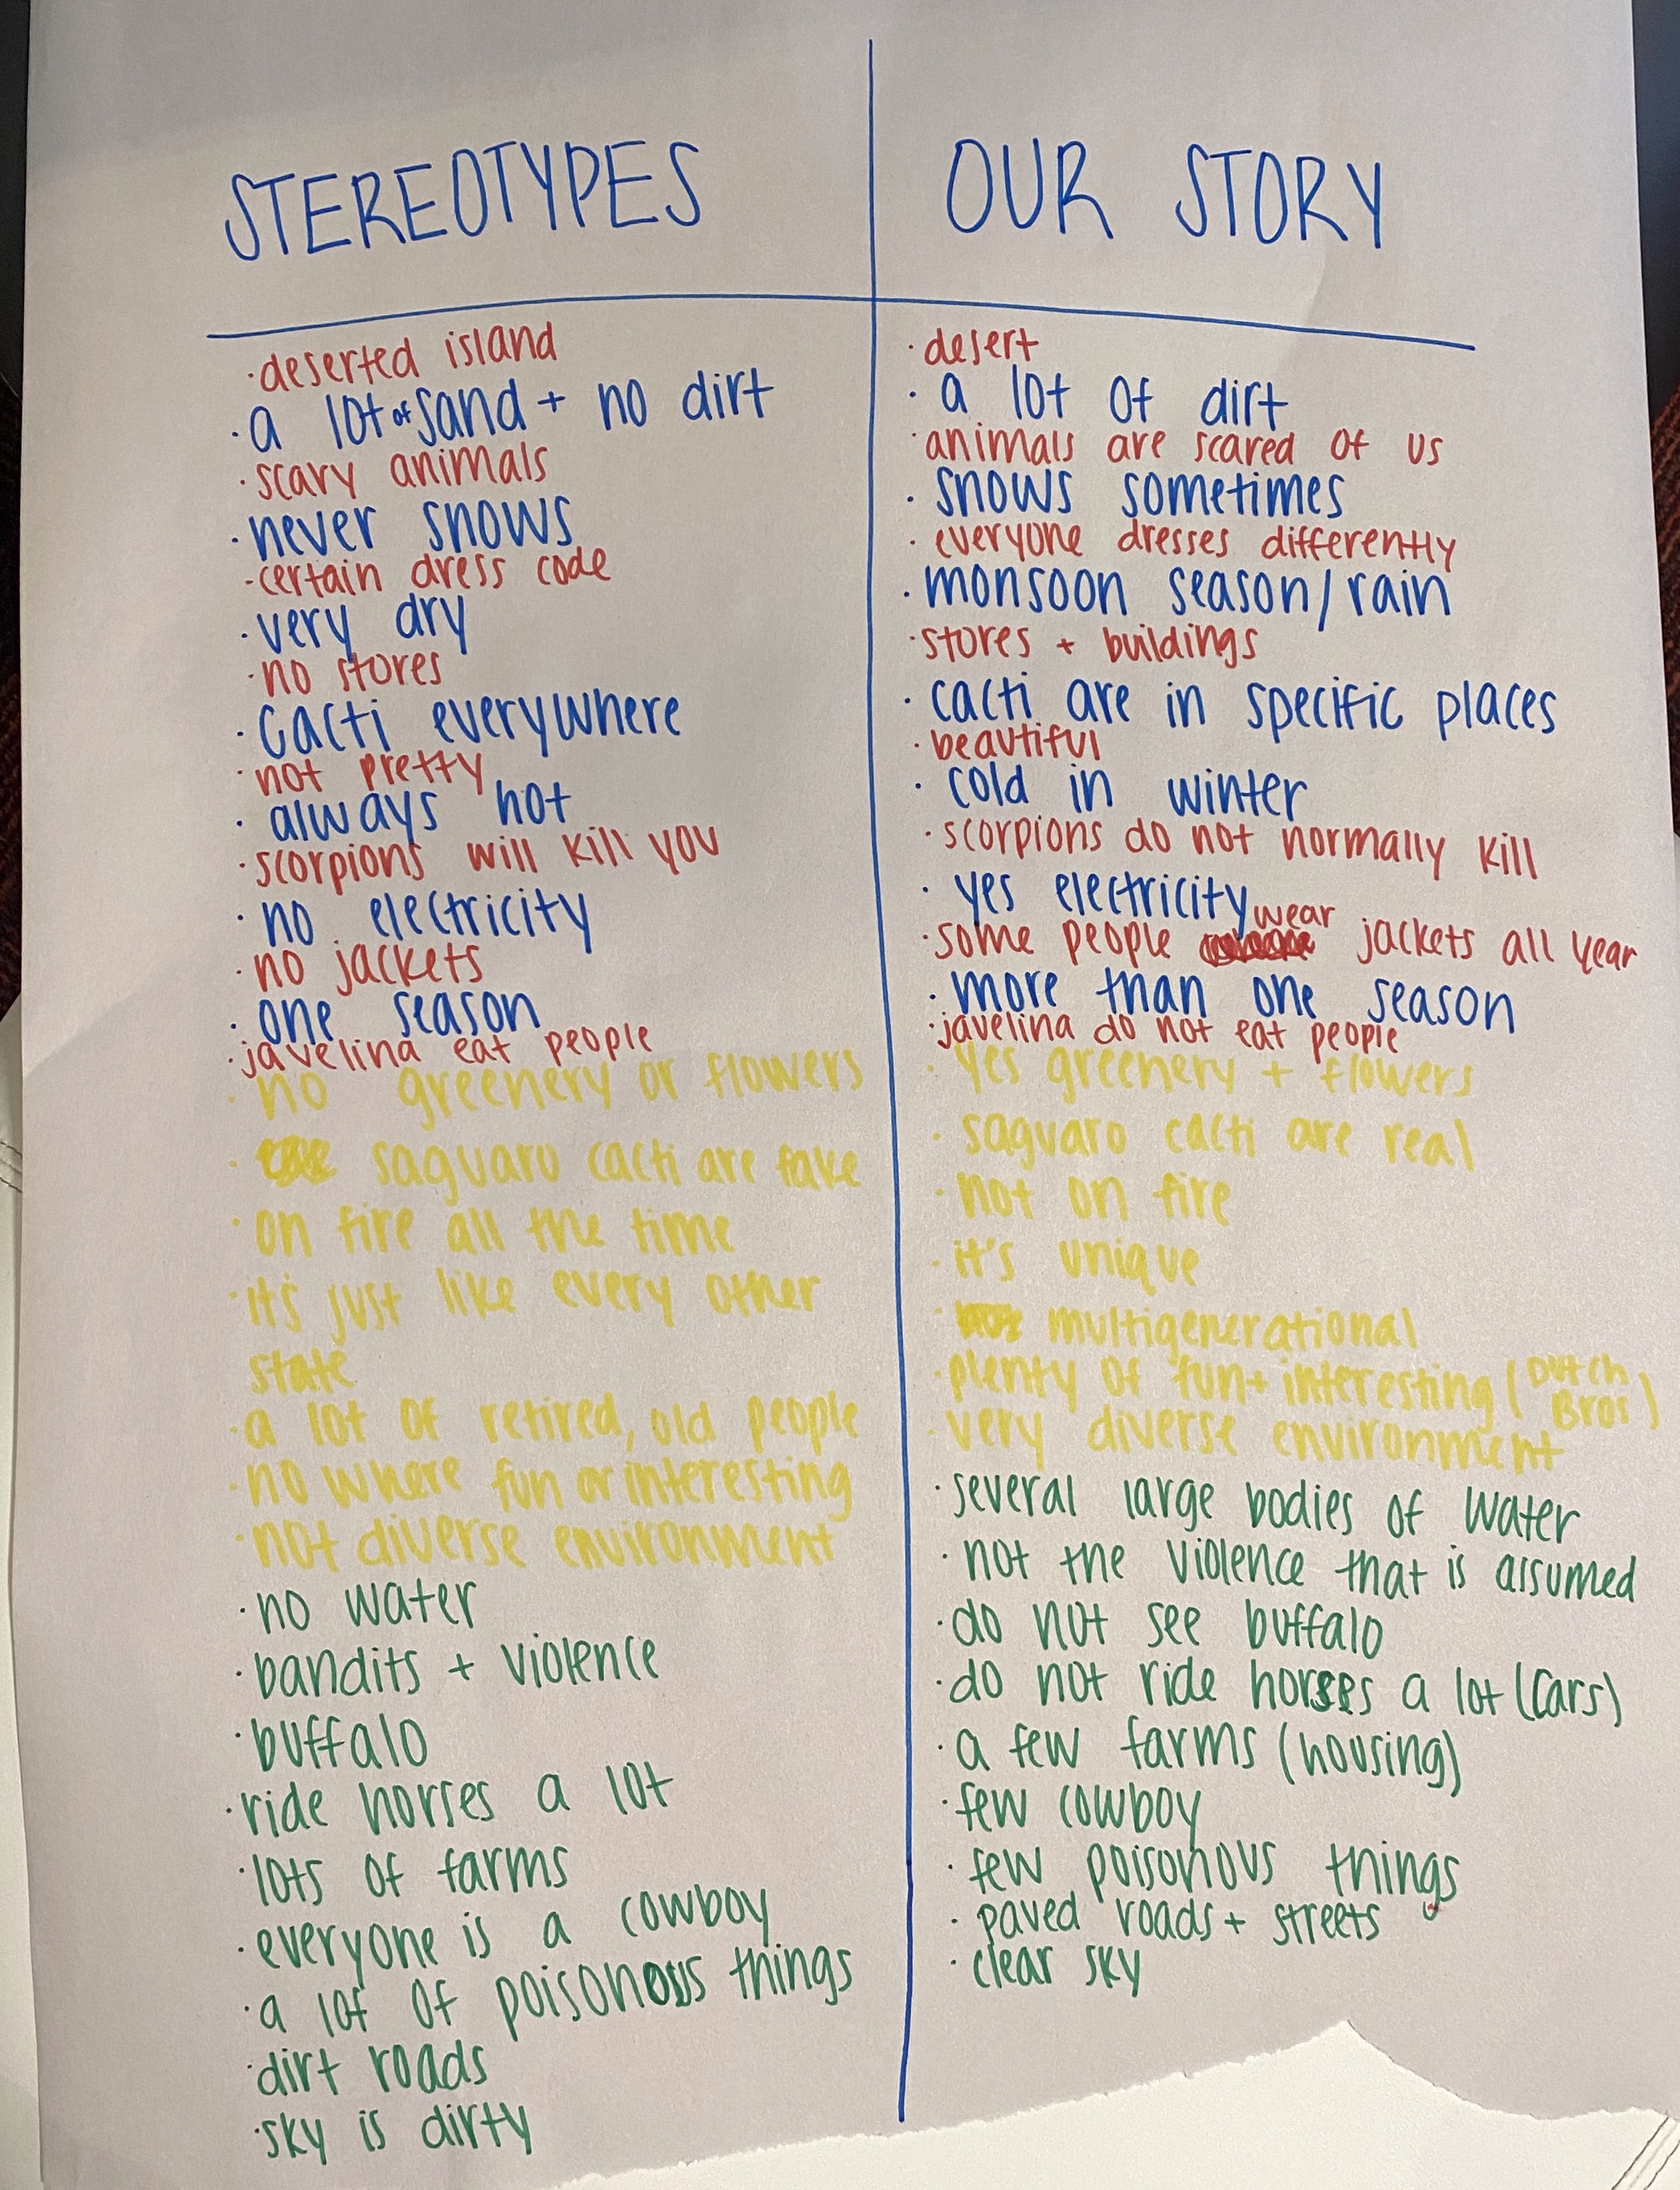 STEREOTYPES
· deserted island
· a lot of sand + no dirt
· scary animals
· never snows
- certain dress code
· very dry
· no stores
· cacti everywhere
· not pretty
· always hot
· scorpions will kill you
· no electricity
· no jackets
· one season
· javelina eat people
· no greenery or flowers
· saguaro cacti are fake
· on fire all the time
· it's just like every other
state
· a lot of retired, old people
· no where fun or interesting
· not diverse environment
· no water
· bandits + violence
· buffalo
· ride horses a lot
· lots of farms
· everyone is a cowboy
· a lot of poisonous things
· dirt roads
· sky is dirty
OUR STORY
· desert
· a lot of dirt
· animals are scared of us
· snows sometimes
· everyone dresses differently
· monsoon season/rain
· stores + buildings
· cacti are in specific places
· beautiful
· cold in winter
· scorpions do not normally kill
· yes electricity
· some people wear jackets all year
· more than one season
· javelina do not eat people
· yes greenery + flowers
· saguaro cacti are real
· not on fire
· it's unique
· multigenerational
· plenty of fun + interesting (Dutch Bros)
· very diverse environment
· several large bodies of water
· not the violence that is assumed
· do not see buffalo
· do not ride horses a lot (cars)
· a few farms (housing)
· few cowboy
· few poisonous things
· paved roads + streets
· clear sky